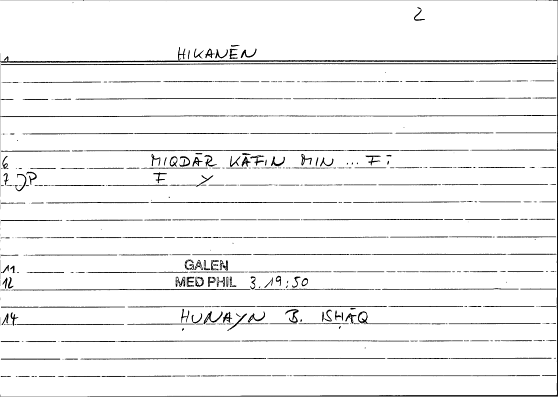 2
1 HIKANĒN
6 MIQDĀR KĀFIN MIN ... FĪ
7 JP F Y
11 GALEN
12 MED PHIL 3.19:50
14 ḤUNAYN B. ISḤĀQ